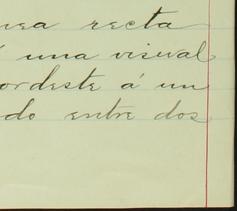 nea recta
una visual
ordeste á un
do entre dos